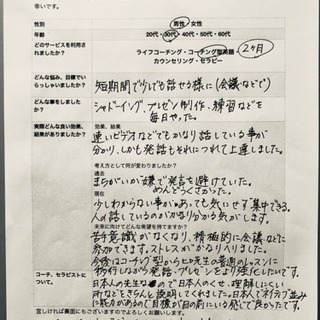 幸いです。
性別 男性・女性
年齢 20代・30代・40代・50代・60代
どのサービスを利用されましたか? ライフコーチング・コーチング型英語・ 2ヶ月
カウンセリング・セラピー
どんな悩み、目標でいらっしゃいましたか? 短期間で少しでも話せる様に(会議などで)
どんな事をしましたか? シャドーイング、プレゼン制作、練習などを
毎日やった。
実際どんな良い効果、結果がありましたか? 効果、結果
速いビデオなどでもかなり話している事が
分かり、しかも発話もそれにつれて上達しました。
考え方として何が変わりましたか?
過去
まちがいが嫌で発言を避けていた。
めんどうくさかった。
現在
少しわからない事があっても気にせず集中できる。
人の話しているのがかなり分かる気がします。
未来に向けてどんな希望を持てますか?
苦手意識がなくなり、積極的に会議などに
参加できます。ストレスがかなりへりました。
今後はコーチング型から 先生の普通のレッスンに
移行しながら発話、プレゼンをより強化したいです。
コーチ、セラピストについて。 日本人の先生なので日本人のくせ、理解しにくい
所などをきちんと説明してくれました。日本人でネイティブ並みに
能力があるので目標が目の前にいる発じで良かったです。
宜しければ裏面にもございますのでよろしくお願い致します。